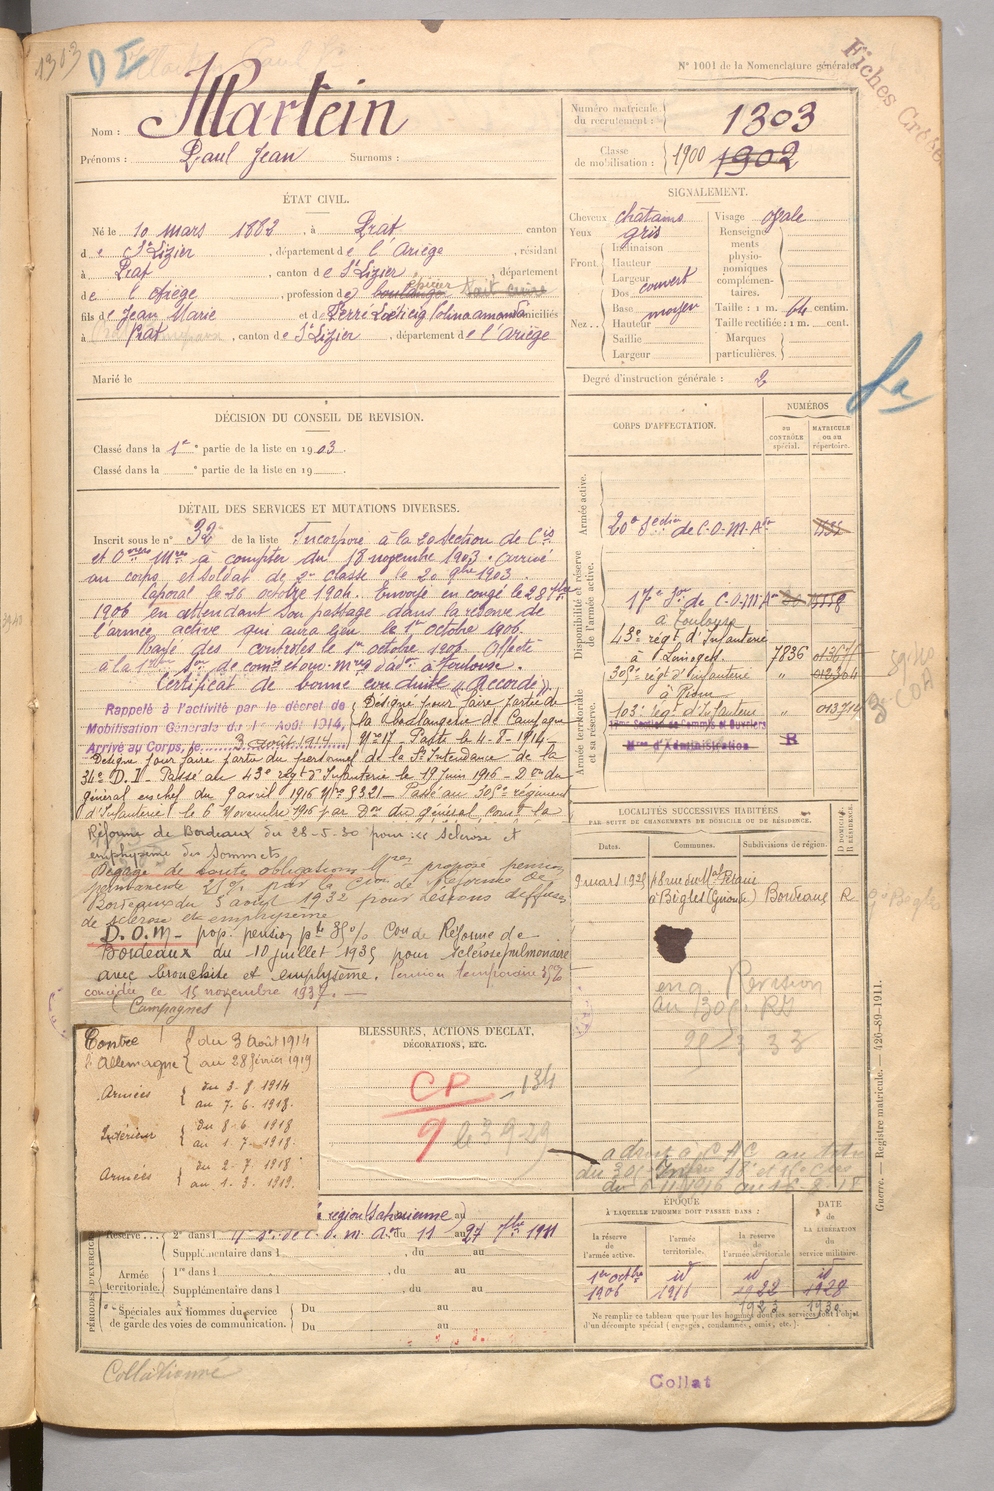 1303
N° 1001 de la Nomenclature générale.
Fiches
Nom : Martein
Prénoms : Paul Jean Surnoms :
Numéro matricule du recrutement : 1303
Classe de mobilisation : 1900 1902
ÉTAT CIVIL.
Né le 10 mars 1882, à Prat canton
de St Lizier, département de l'Ariège, résidant
à Prat, canton de St Lizier, département
de l'Ariège, profession de épicier
fils de Jean Marie et de domiciliés
à Prat, canton de St Lizier, département de l'Ariège
Marié le
SIGNALEMENT.
Cheveux chatains
Yeux gris
Front. Inclinaison
Hauteur
Largeur
Nez. Dos couvert
Base moyen
Hauteur
Saillie
Largeur
Visage ovale
Renseignements physionomiques complémentaires.
Taille : 1 m. 64 centim.
Taille rectifiée : 1 m. cent.
Marques particulières.
Degré d'instruction générale : 2
DÉCISION DU CONSEIL DE REVISION.
Classé dans la 1re partie de la liste en 1903.
Classé dans la ° partie de la liste en 19
DÉTAIL DES SERVICES ET MUTATIONS DIVERSES.
Inscrit sous le n° 32 de la liste Incorporé à la 20 section de Cis
et Ouvers Mres à compter du 18 novembre 1903. Arrivé
au corps et soldat de 2e classe le 20 9bre 1903.
Caporal le 26 octobre 1904. Envoyé en congé le 28 7bre
1906 en attendant son passage dans la réserve de
l'armée active qui aura lieu le 1er octobre 1906.
Rayé des contrôles le 1er octobre 1906. Affecté
à la 17e Son de comis et ouv. mres d'adm à Toulouse.
Certificat de bonne conduite "Accordé"
Rappelé à l'activité par le décret de
Mobilisation Générale du 1er Août 1914,
Arrivé au Corps, le 3 août 1914
Désigné pour faire partie de
la Boulangerie de Campagne
N° 17 - Parti le 4-8-1914 -
Désigné pour faire partie du personnel de la Ss Intendance de la
34e D.I - Passé au 43e régt d'Infanterie le 19 Juin 1916 - Don du
général en chef du 9 avril 1916 N° 9321 - Passé au 305e régiment
d'Infanterie le 6 Novembre 1916 par Don du général comt la
Réforme de Bordeaux du 28-5-30 pour : sclérose et
emphysème des sommets
Dégagé de toute obligations Mres proposé pension
permanente 25% par la Cion de Réforme de
Bordeaux du 5 août 1932 pour lésions diffuses
de sclérose et emphysème
D.O.M - prop. pension pte 35% Con de Réforme de
Bordeaux du 10 juillet 1935 pour sclérose pulmonaire
avec bronchite et emphysème. Pension temporaire 35%
concédée le 15 novembre 1937. -
CORPS D'AFFECTATION.
NUMÉROS
au CONTRÔLE spécial.
MATRICULE ou au répertoire.
Armée active.
20e Section de C.O.M.A.
Disponibilité et réserve de l'armée active.
17e Son de C.O.M.A
à Toulouse
43e régt d'Infanterie
à Limoges 7836
305e régt d'Infanterie "
à Riom
Armée territoriale et sa réserve.
103e régt d'Infanterie " 013714
Section de Commis et Ouvriers
Mres d'Administration R
LOCALITÉS SUCCESSIVES HABITÉES
PAR SUITE DE CHANGEMENTS DE DOMICILE OU DE RÉSIDENCE.
Dates. Communes. Subdivisions de région. D DOMICILE. R RÉSIDENCE.
à Bègles (Gironde) Bordeaux R
Campagnes
Contre l'Allemagne du 3 Août 1914 au 28 février 1919
Armées du 3-8-1914 au 7-6-1918
Intérieur du 8-6-1918 au 1-7-1918
Armées du 2-7-1918 au 1-3-1919.
BLESSURES, ACTIONS D'ÉCLAT, DÉCORATIONS, ETC.
CP 134
9
PÉRIODES D'EXERCICES
(région Saharienne) au
Réserve 2e dans l du 11 au 27 7bre 1911
Supplémentaire dans l , du au
Armée territoriale. 1re dans l , du au
Supplémentaire dans l , du au
Spéciales aux hommes du service de garde des voies de communication. Du au
Du au
ÉPOQUE
À LAQUELLE L'HOMME DOIT PASSER DANS :
la réserve de l'armée active. l'armée territoriale. la réserve de l'armée territoriale
DATE de la LIBÉRATION du service militaire.
1er octbre 1906 id 1916 id 1922 id 1928
1923
Ne remplir ce tableau que pour les hommes dont les services sont l'objet d'un décompte spécial (engagés, condamnés, omis, etc.).
Guerre. — Registre matricule. — 426-89-1911.
Collationné
Collat